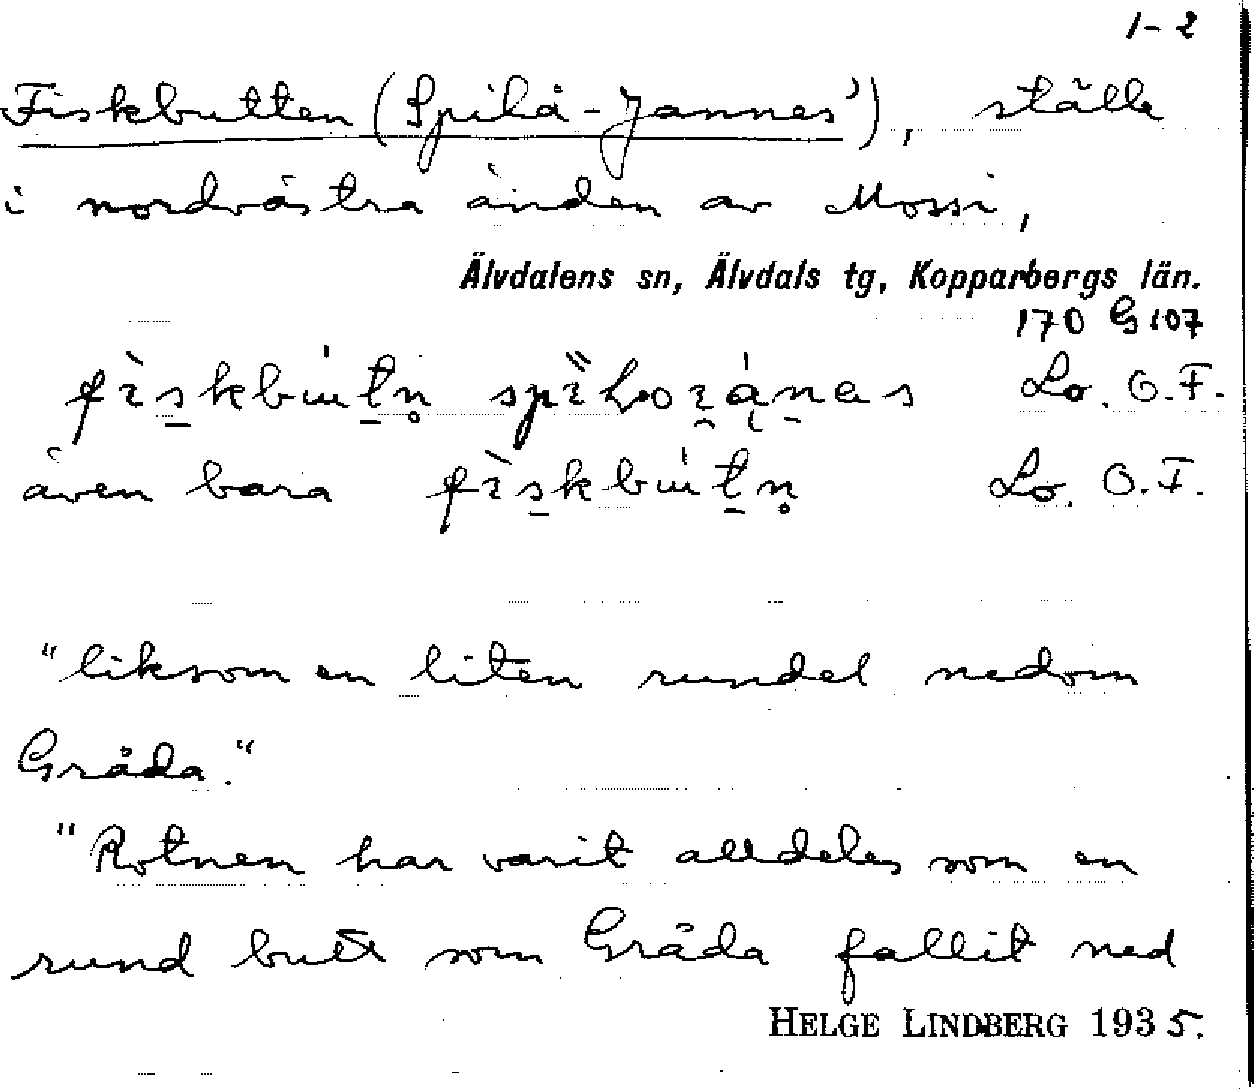 1-2
Fiskbutten (Spilå-Jannes'), ställe
i nordvästra änden av Mossi,
Älvdalens sn, Älvdals tg, Kopparbergs län.
170 G 107
Lo. O.F.
även bara Lo. O.F.
"liksom en liten rundel nedom
Gråda."
"Rotnen har varit alldeles som en
rund butt som Gråda fallit ned
HELGE LINDBERG 1935.